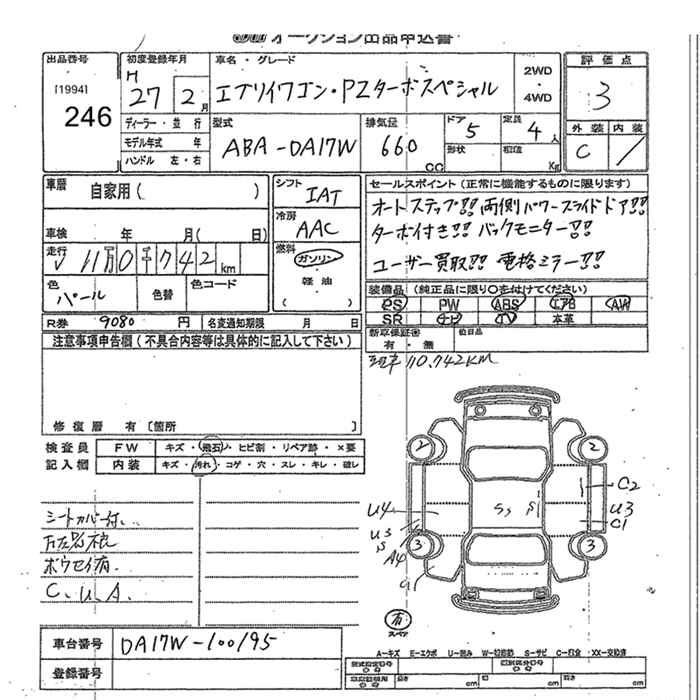 オークション出品申込書
出品番号
[1994]
246
初度登録年月
H
27 2 月
車名・グレード
エブリイワゴン・PZターボスペシャル
2WD
・
4WD
評価点
3
ディーラー・並行
モデル年式 年
ハンドル 左・右
型式
ABA-DA17W
排気量
660 cc
ドア 5
形状
定員 4 人
積載 Kg
外装 内装
C /
車歴 自家用( )
シフト IAT
車検 年 月( 日)
冷房 AAC
走行 11万0千742 km
燃料 ガソリン
・
軽油
( )
色 パール 色替 色コード
セールスポイント(正常に機能するものに限ります)
オートステップ!! 両側パワースライドドア!!
ターボ付き!! バックモニター!!
ユーザー買取!! 電格ミラー!!
装備品(純正品に限り○を付けてください)
PS PW ABS エアB AW
SR ナビ TV 本革
R券 9080 円 名変通知期限 月 日
新車保証書
有・無
後日品
注意事項申告欄(不具合内容等は具体的に記入して下さい)
110,742KM
修復歴 有〔箇所
検査員
記入欄
FW キズ・飛石・ヒビ割・リペア跡・×要
内装 キズ・汚れ・コゲ・穴・スレ・キレ・破レ
シートカバー付.
ボウセイ有.
C. U. A.
2 2
C2
U4 S S U3
C1
U3
S
A4
3 3
有
スペア
車台番号 DA17W-100195
登録番号
A-キズ E-エクボ U-凹み W-切箇跡 S-サビ C-腐食 XX-交換済
長さ cm 幅 cm 高さ cm